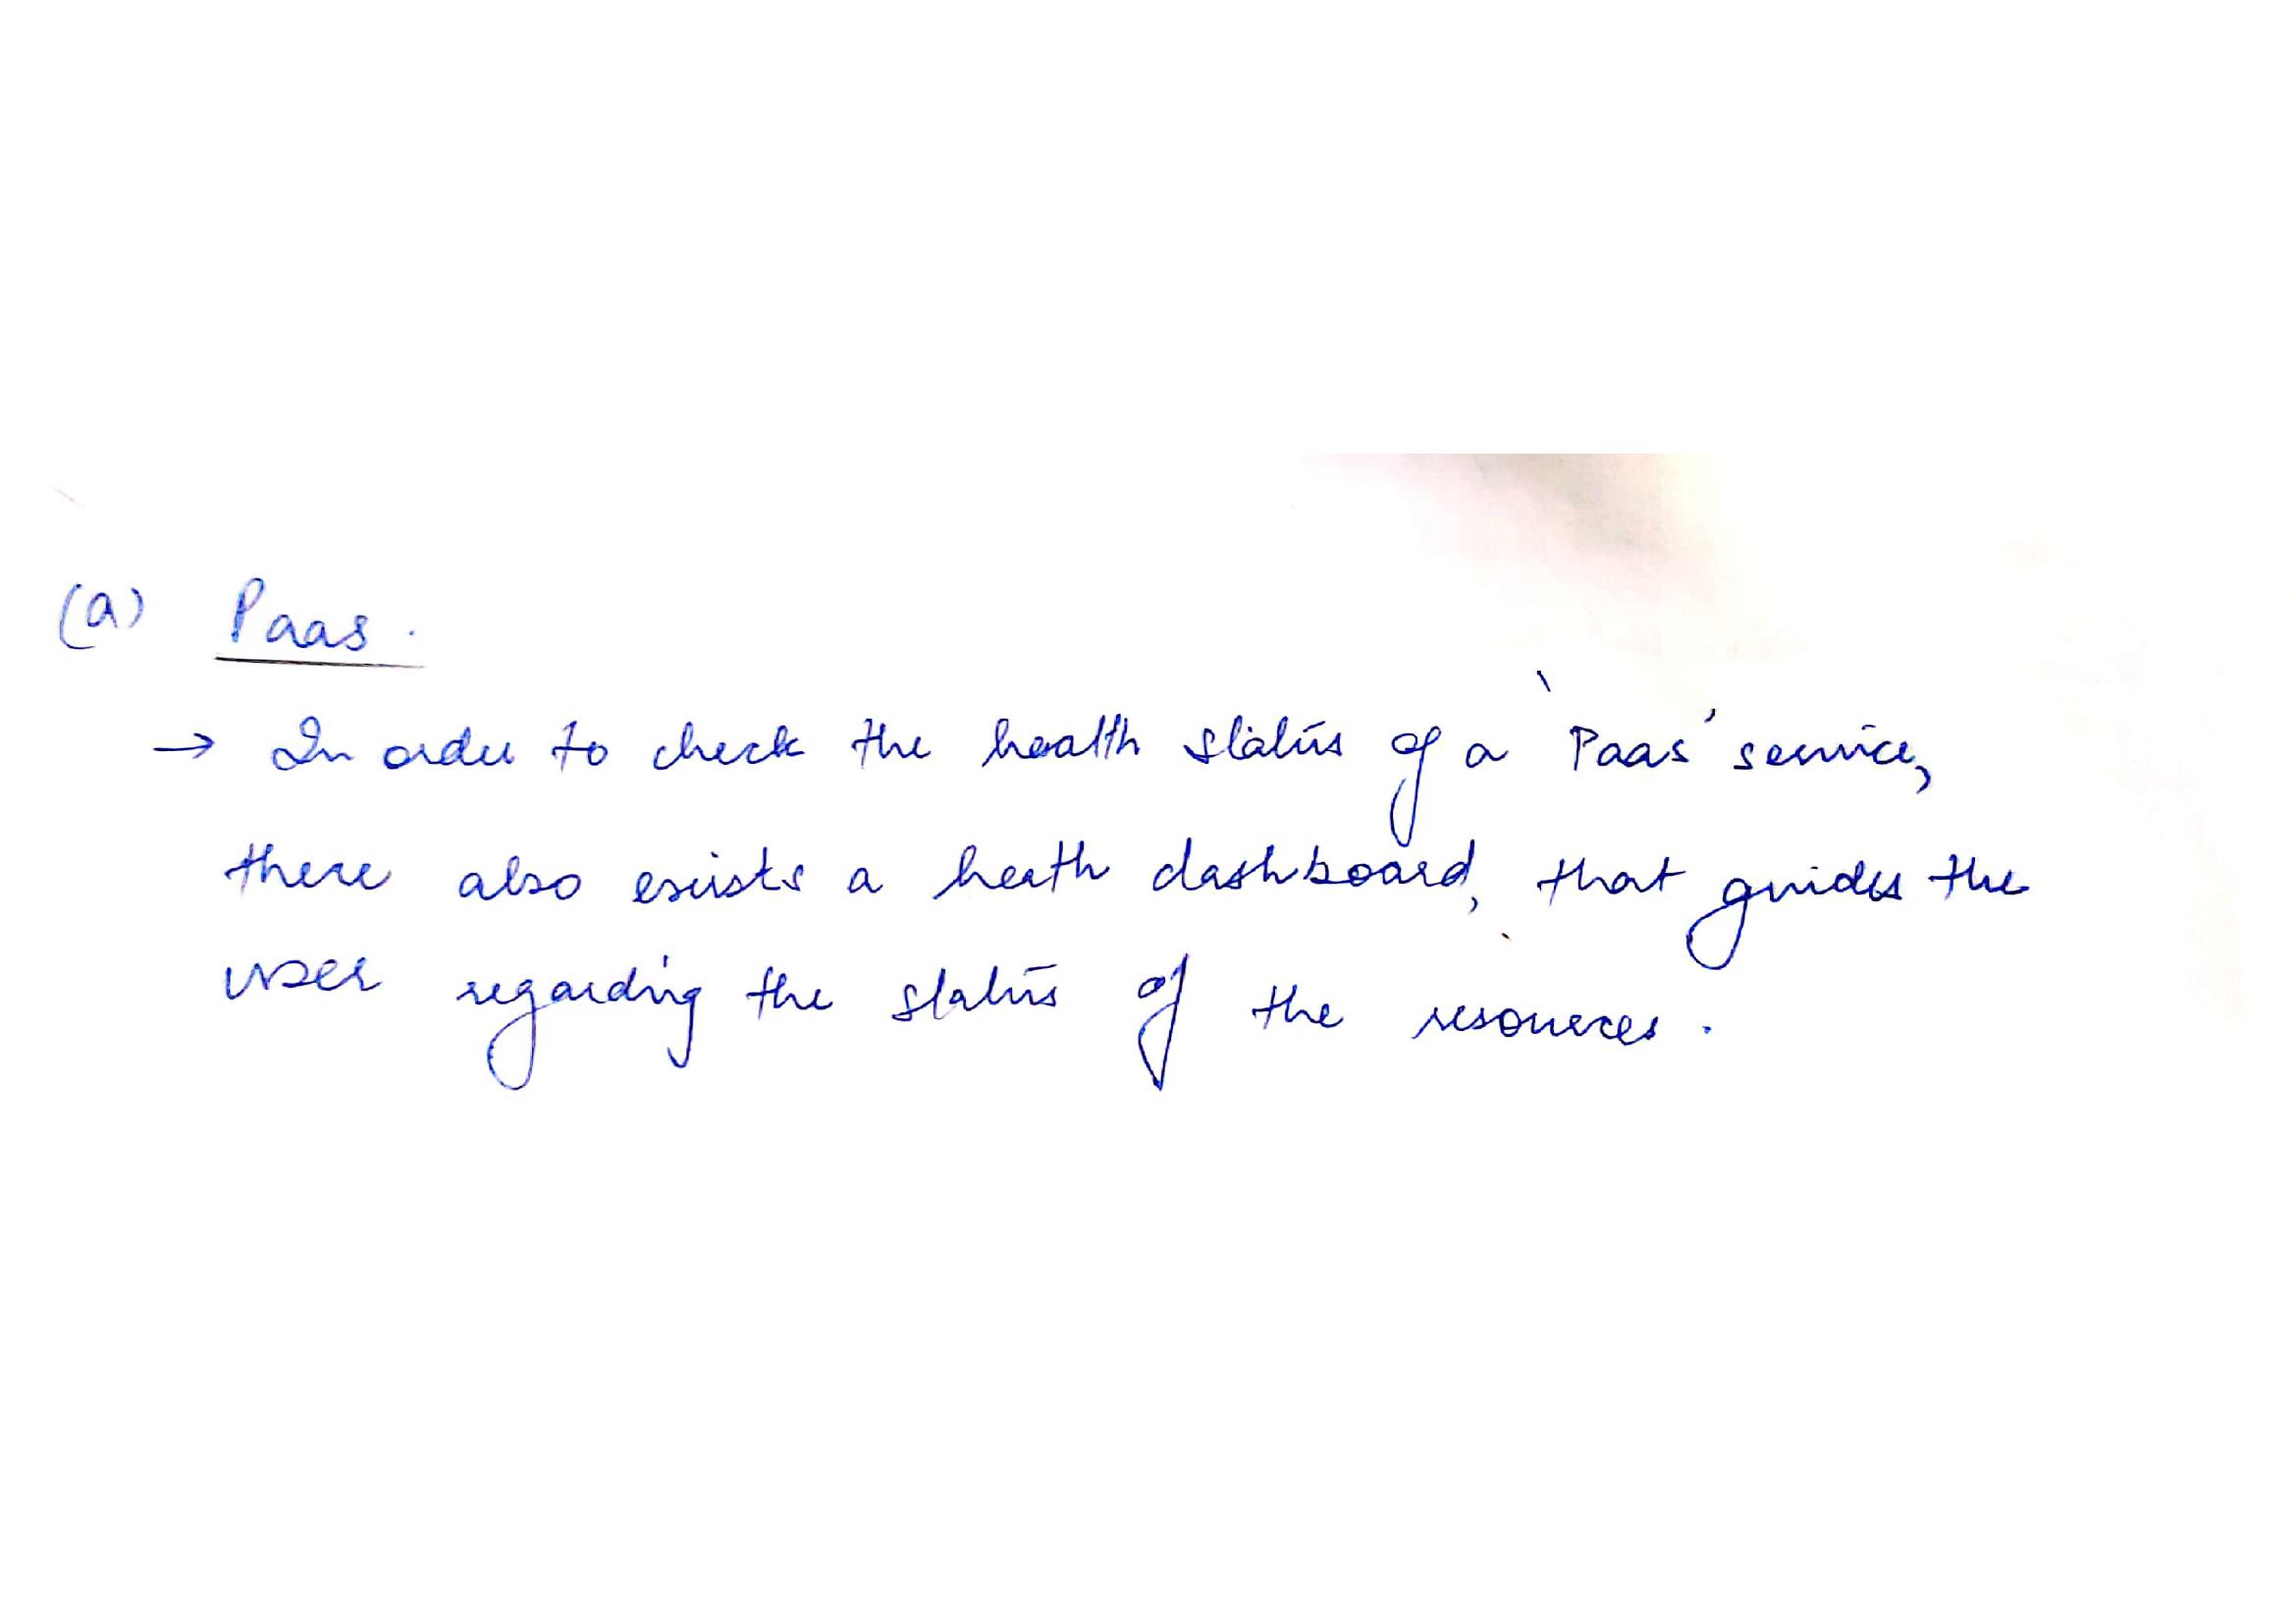 (a) Paas.
→ In order to check the health status of a 'Paas' service,
there also exists a heath dashboard, that guides the
user regarding the status of the resources.